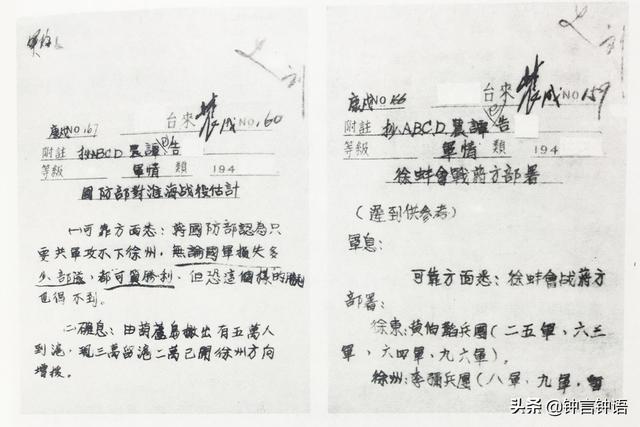 台來
NO. 60
NO. 167
附註 抄A.B.C.D.農譯告
等級 軍情 類 194
國防部對淮海战役估計
一可靠方面悉：蔣國防部認為只
要共軍攻不下徐州，無論國軍損失多
少部隊，都可算勝利，但恐這個樣的
也得不到。
二確息：由葫蘆島撤出有五萬人
到滬，現三萬留滬二萬已開徐州方向
增援。
台來
NO. 159
NO. 166
附註 抄A.B.C.D.農譯告
等級 軍情 類 194
徐蚌會戰蔣方部署
（遲到供參考）
軍息：
可靠方面悉：徐蚌會战蔣方
部署：
徐東：黄伯韜兵團（二五軍，六三
軍，六四軍，九六軍）。
徐州：李彌兵團（八軍，九軍，暫
头条 @钟言钟语